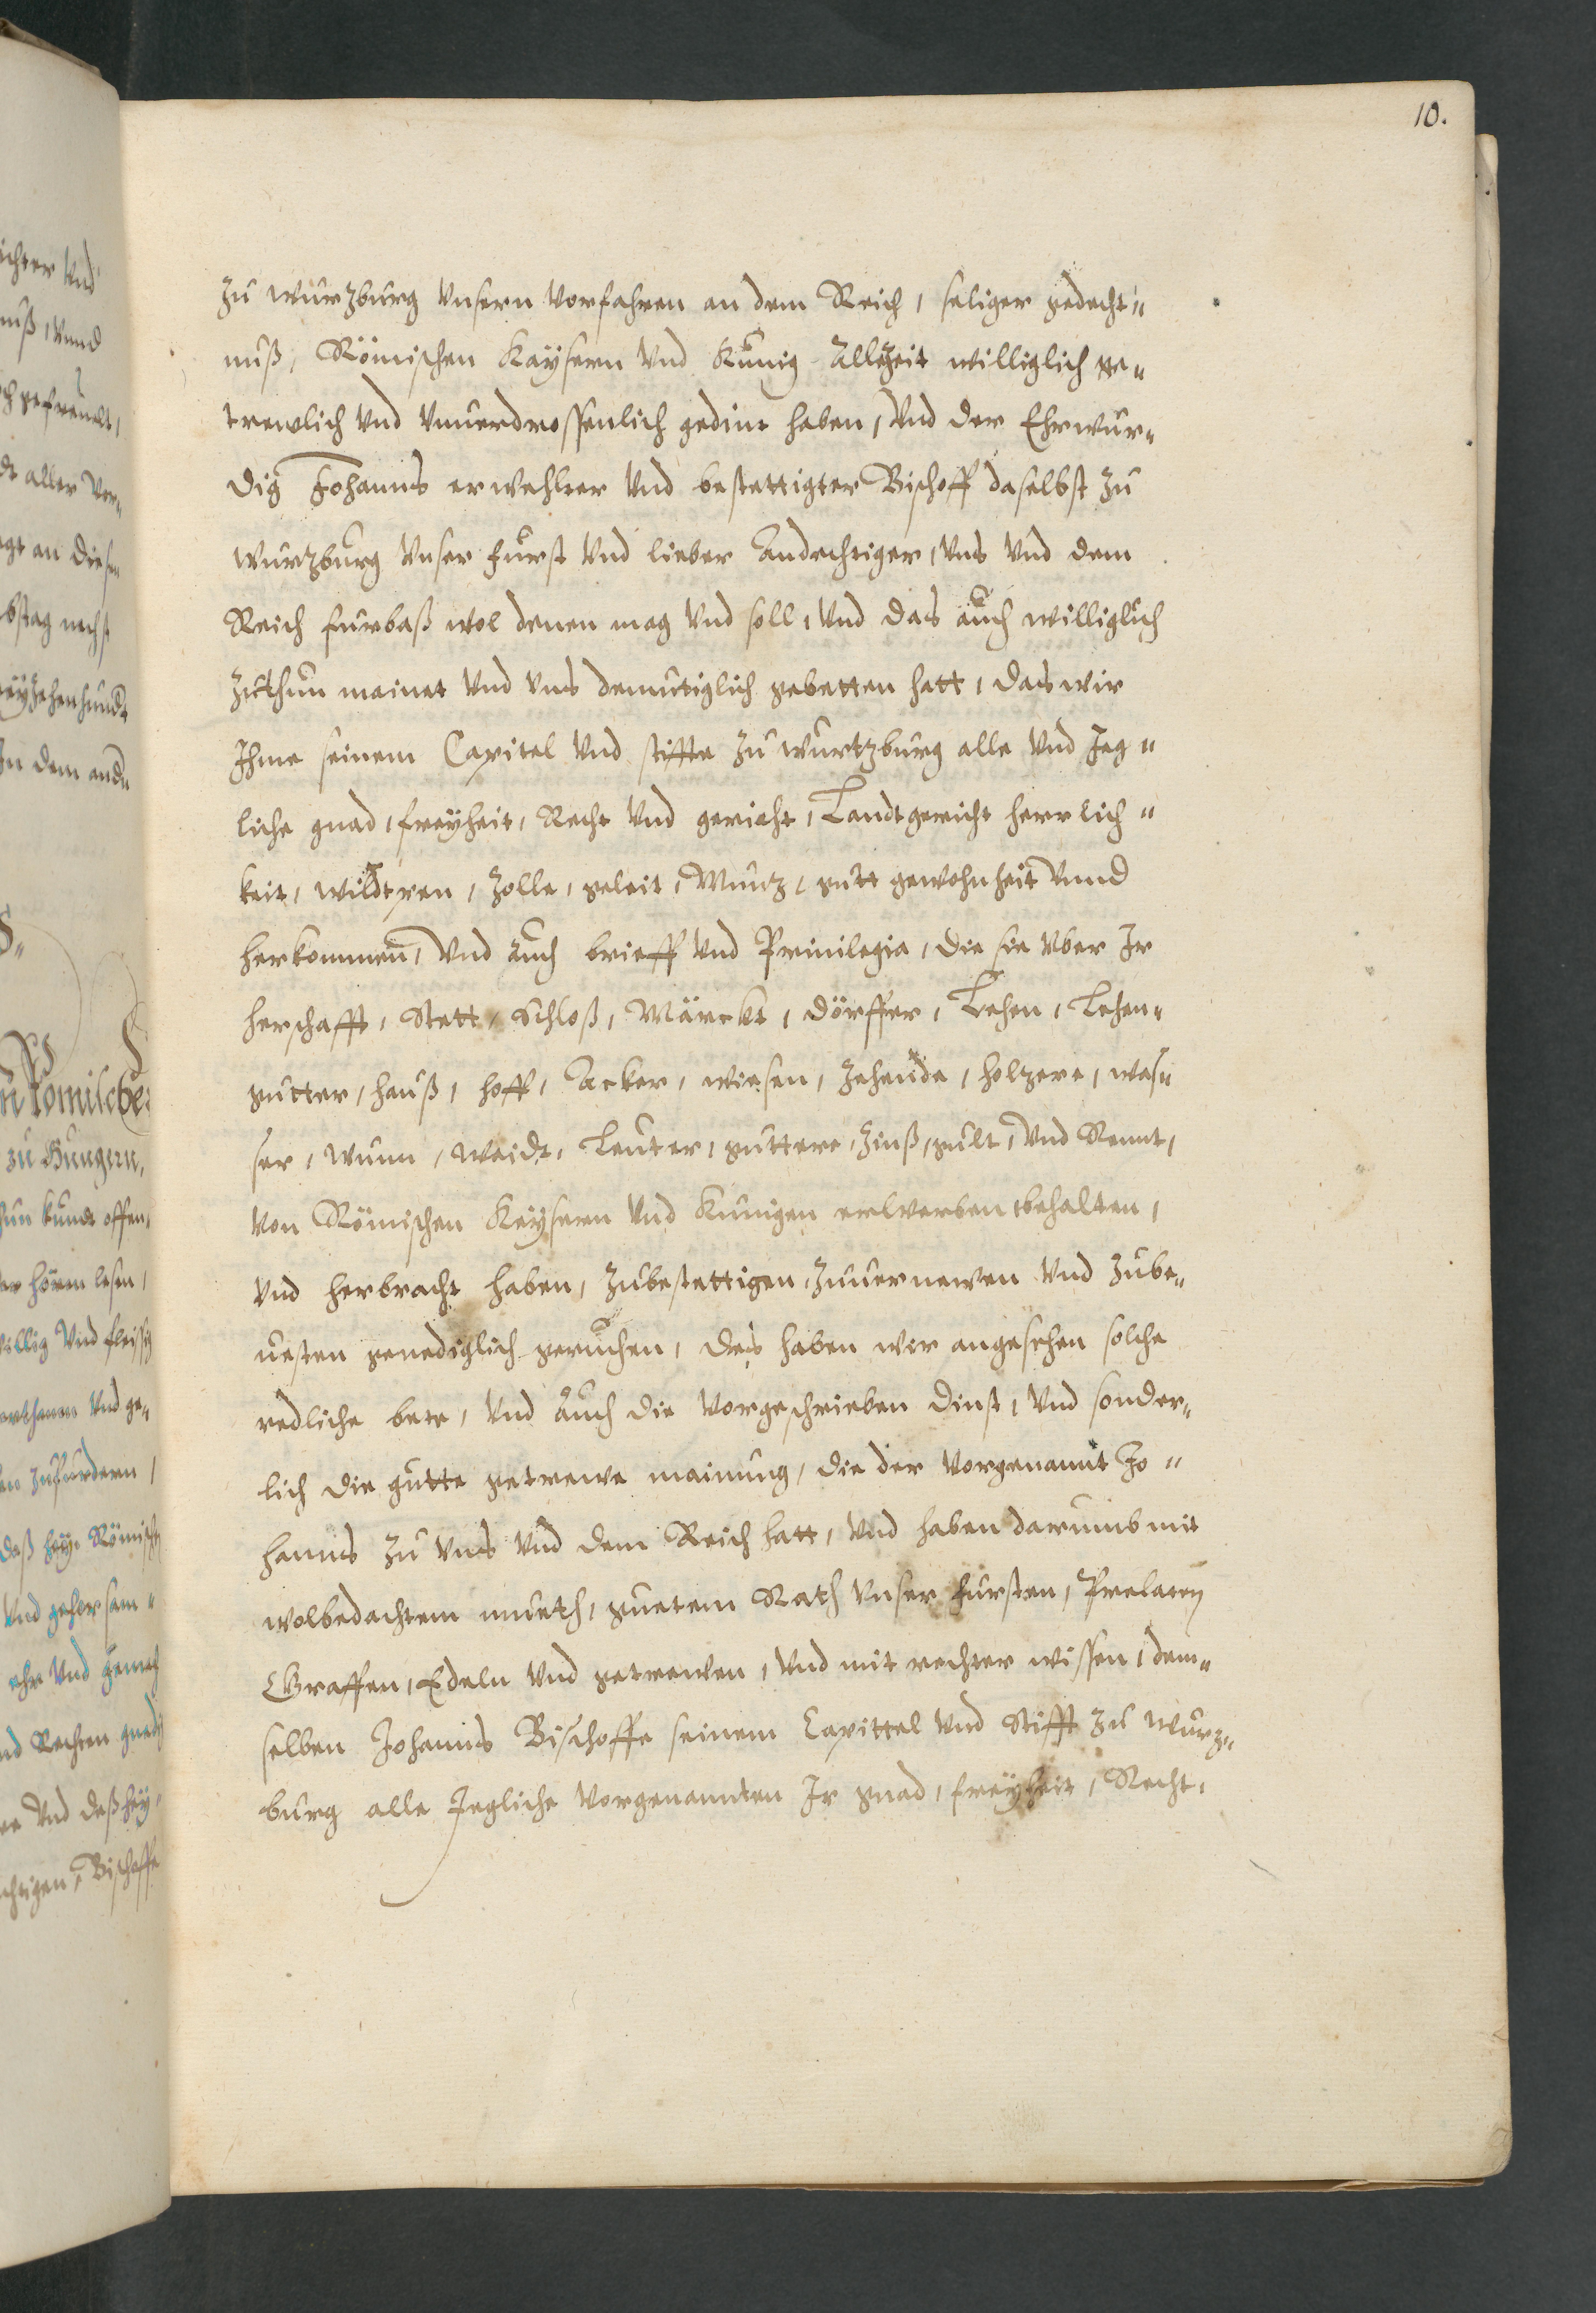 10.
zu wurzburg Vnsern Vorfahren an dem Reich, seliger gedecht„
nuß, Römischen Kaÿsern Vnd Kunig Allzeit williglich ge„
trewlich Vnd Vnuerdrossenlich gedint haben, Vnd der Ehrwur„
dig Johanns erwehlter Vnd bestettigter Bischoff daselbst zu
wurtzburg Vnser furst Vnd lieber Andechtiger, Vns Vnd dem
Reich furbaß wol denen mag Vnd soll, Vnd das auch williglich
zuthun mainet Vnd Vns demutiglich gebetten hatt, das wir
Ihme seinem Capitel Vnd stiffte zu wurtzburg alle Vnd Jeg„
liche gnad, freyheit, Recht Vnd gericht, Landtgericht herrlich„
keit, wildtpen, Zolle, geleit, Muntz, gutt gewohnheit Vnnd
herkommen, Vnd Auch brieff Vnd Priuilegia, die sie Vber Ir
herschafft, Stett, Schloß, Märckt, dörffer, Lehen, Lehen„
gutter, hauß, hoff, Acker, wiesen, Zehende, holtzere, was„
ser, wunn, Waidt, Leuter, guttere, Zinß, gult, Vnd Rennt,
Von Römischen Keÿsern Vnd Kunigen erlwerben behalten,
Vnd herbracht haben, zubestettigen, zuuernewen Vnd zube„
uesten genediglich geruchen, des haben wir angesehen solche
redliche bete, Vnd Auch die Vorgeschrieben dinst, Vnd sonder„
lich die gutte getrewe mainung, die der Vorgenannt Jo„
hanns zu Vns Vnd dem Reich hatt, Vnd haben darumb mit
wolbedachtem mueth, guetem Rath Vnser fursten, Prelaten
Graffen, Edeln Vnd getrewen, Vnd mit rechter wissen, dem„
selben Johanns Bischoffe seinem Capittel Vnd Stifft zu wurz„
burg alle Jegliche Vorgenannten Ir gnad, freÿheit, Recht,